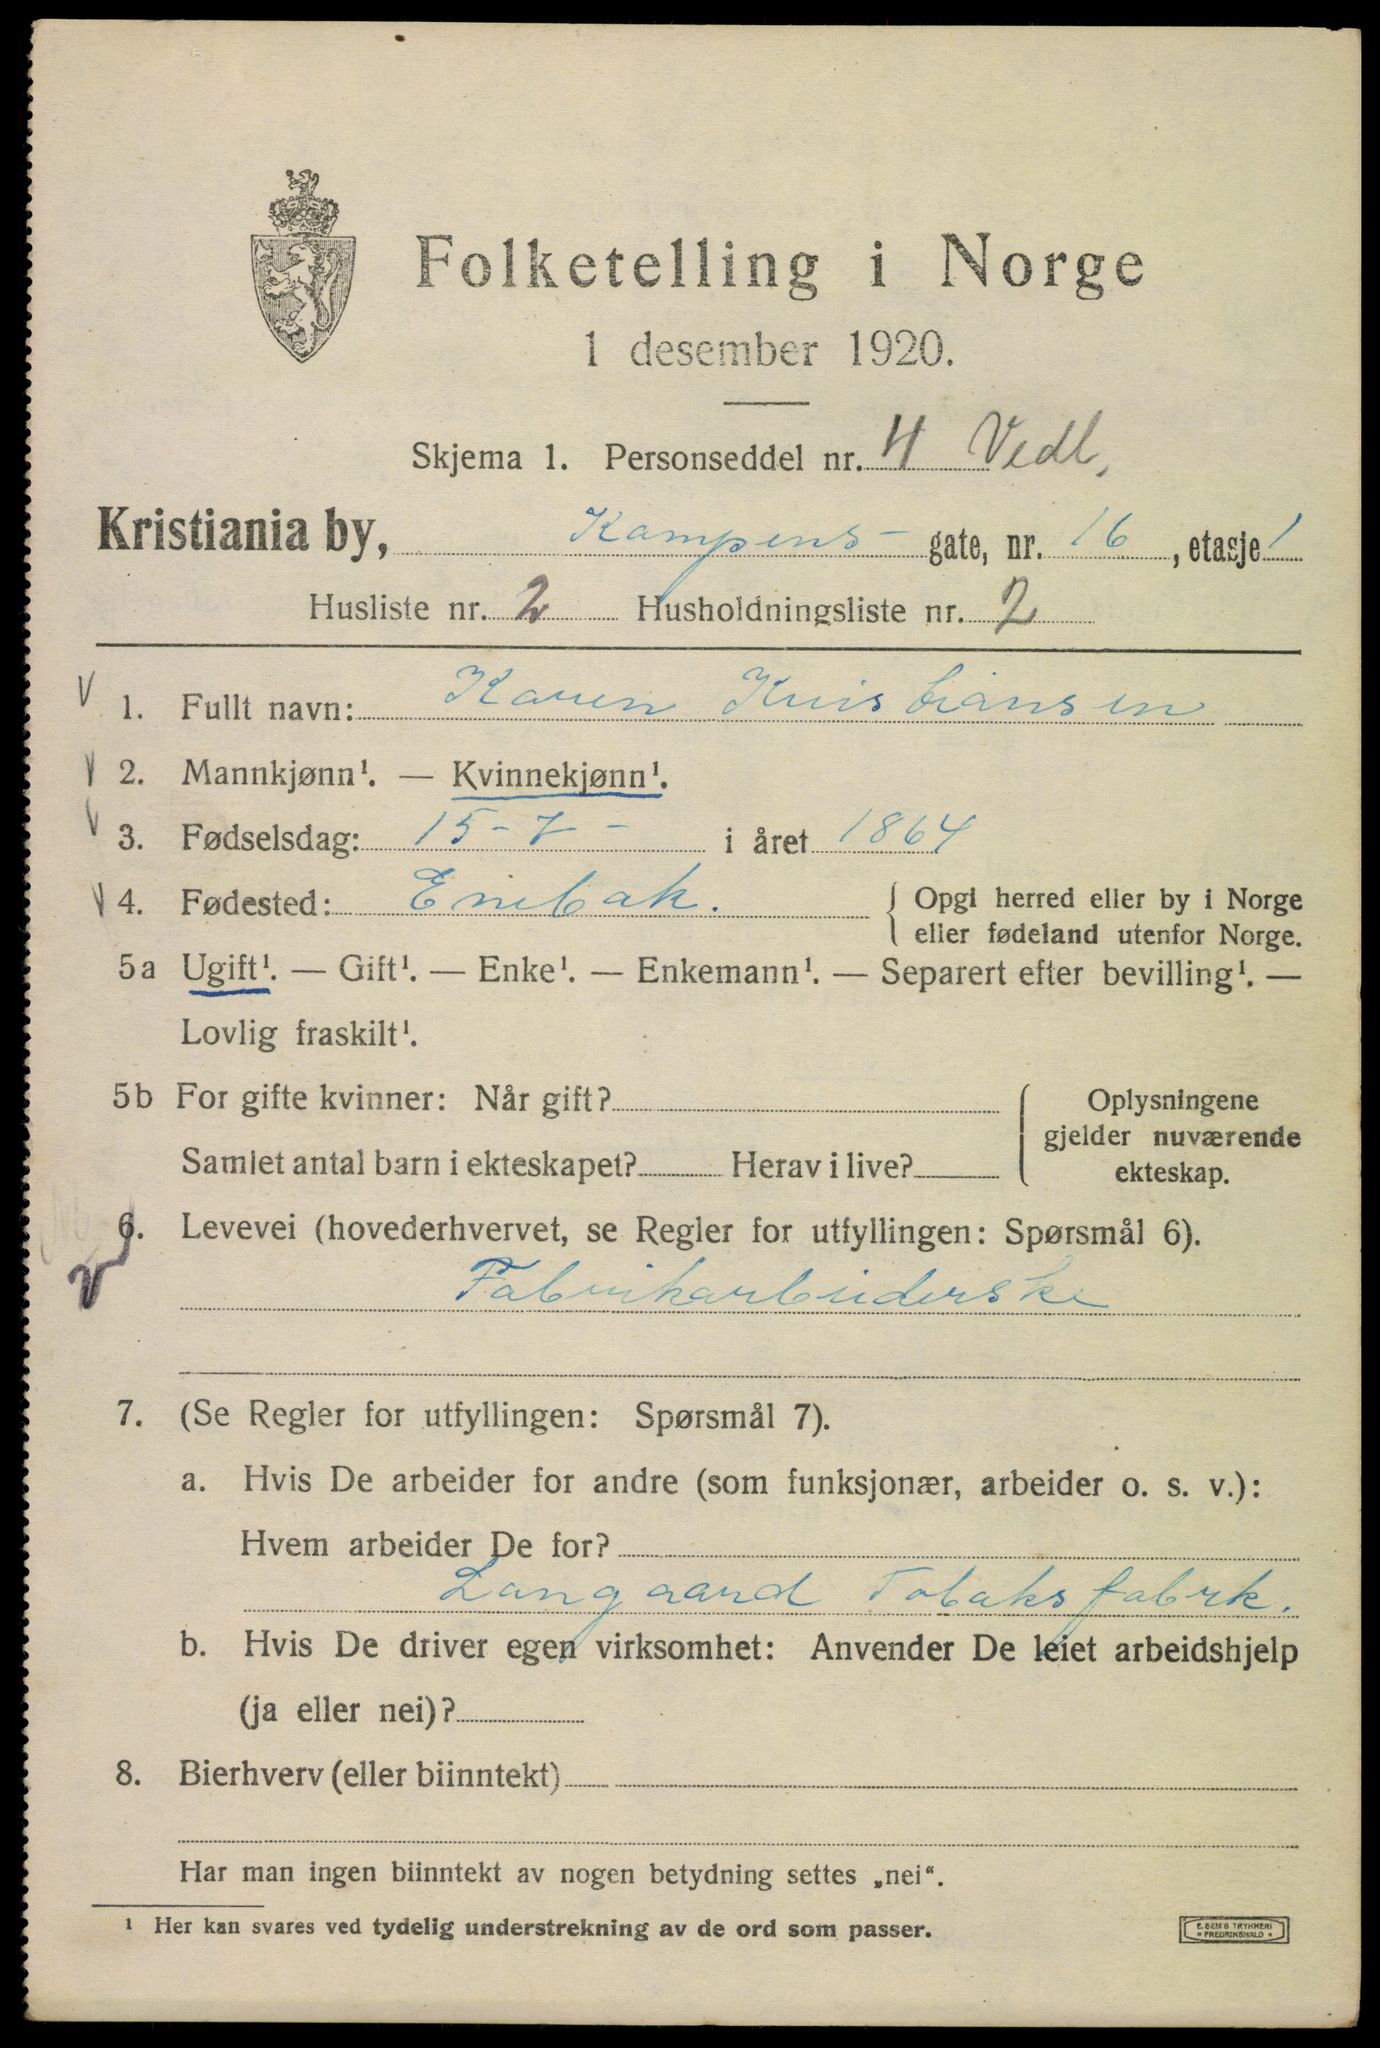 Folketelling i Norge
1 desember 1920.
Skjema 1. Personseddel nr. 4 Vedl.
Kristiania by, Kampens- gate, nr. 16, etasje 1
Husliste nr. 2 Husholdningsliste nr. 2
1. Fullt navn: Karen Kristiansen
2. Mannkjønn¹. — Kvinnekjønn¹.
3. Fødselsdag: 15-7- i året 1864
4. Fødested: Enebak. { Opgi herred eller by i Norge
eller fødeland utenfor Norge.
5a Ugift¹. — Gift¹. — Enke¹. — Enkemann¹. — Separert efter bevilling¹. —
Lovlig fraskilt¹.
5b For gifte kvinner: Når gift?
Samlet antal barn i ekteskapet? Herav i live?
Oplysningene
gjelder nuværende
ekteskap.
6. Levevei (hovederhvervet, se Regler for utfyllingen: Spørsmål 6).
Fabrikarbeiderske
7. (Se Regler for utfyllingen: Spørsmål 7).
a. Hvis De arbeider for andre (som funksjonær, arbeider o. s. v.):
Hvem arbeider De for?
Langaard Tobaksfabrk.
b. Hvis De driver egen virksomhet: Anvender De leiet arbeidshjelp
(ja eller nei)?
8. Bierhverv (eller biinntekt) —
Har man ingen biinntekt av nogen betydning settes „nei“.
¹ Her kan svares ved tydelig understrekning av de ord som passer.
E. SEM'S TRYKKERI
* FREDRIKSHALD *